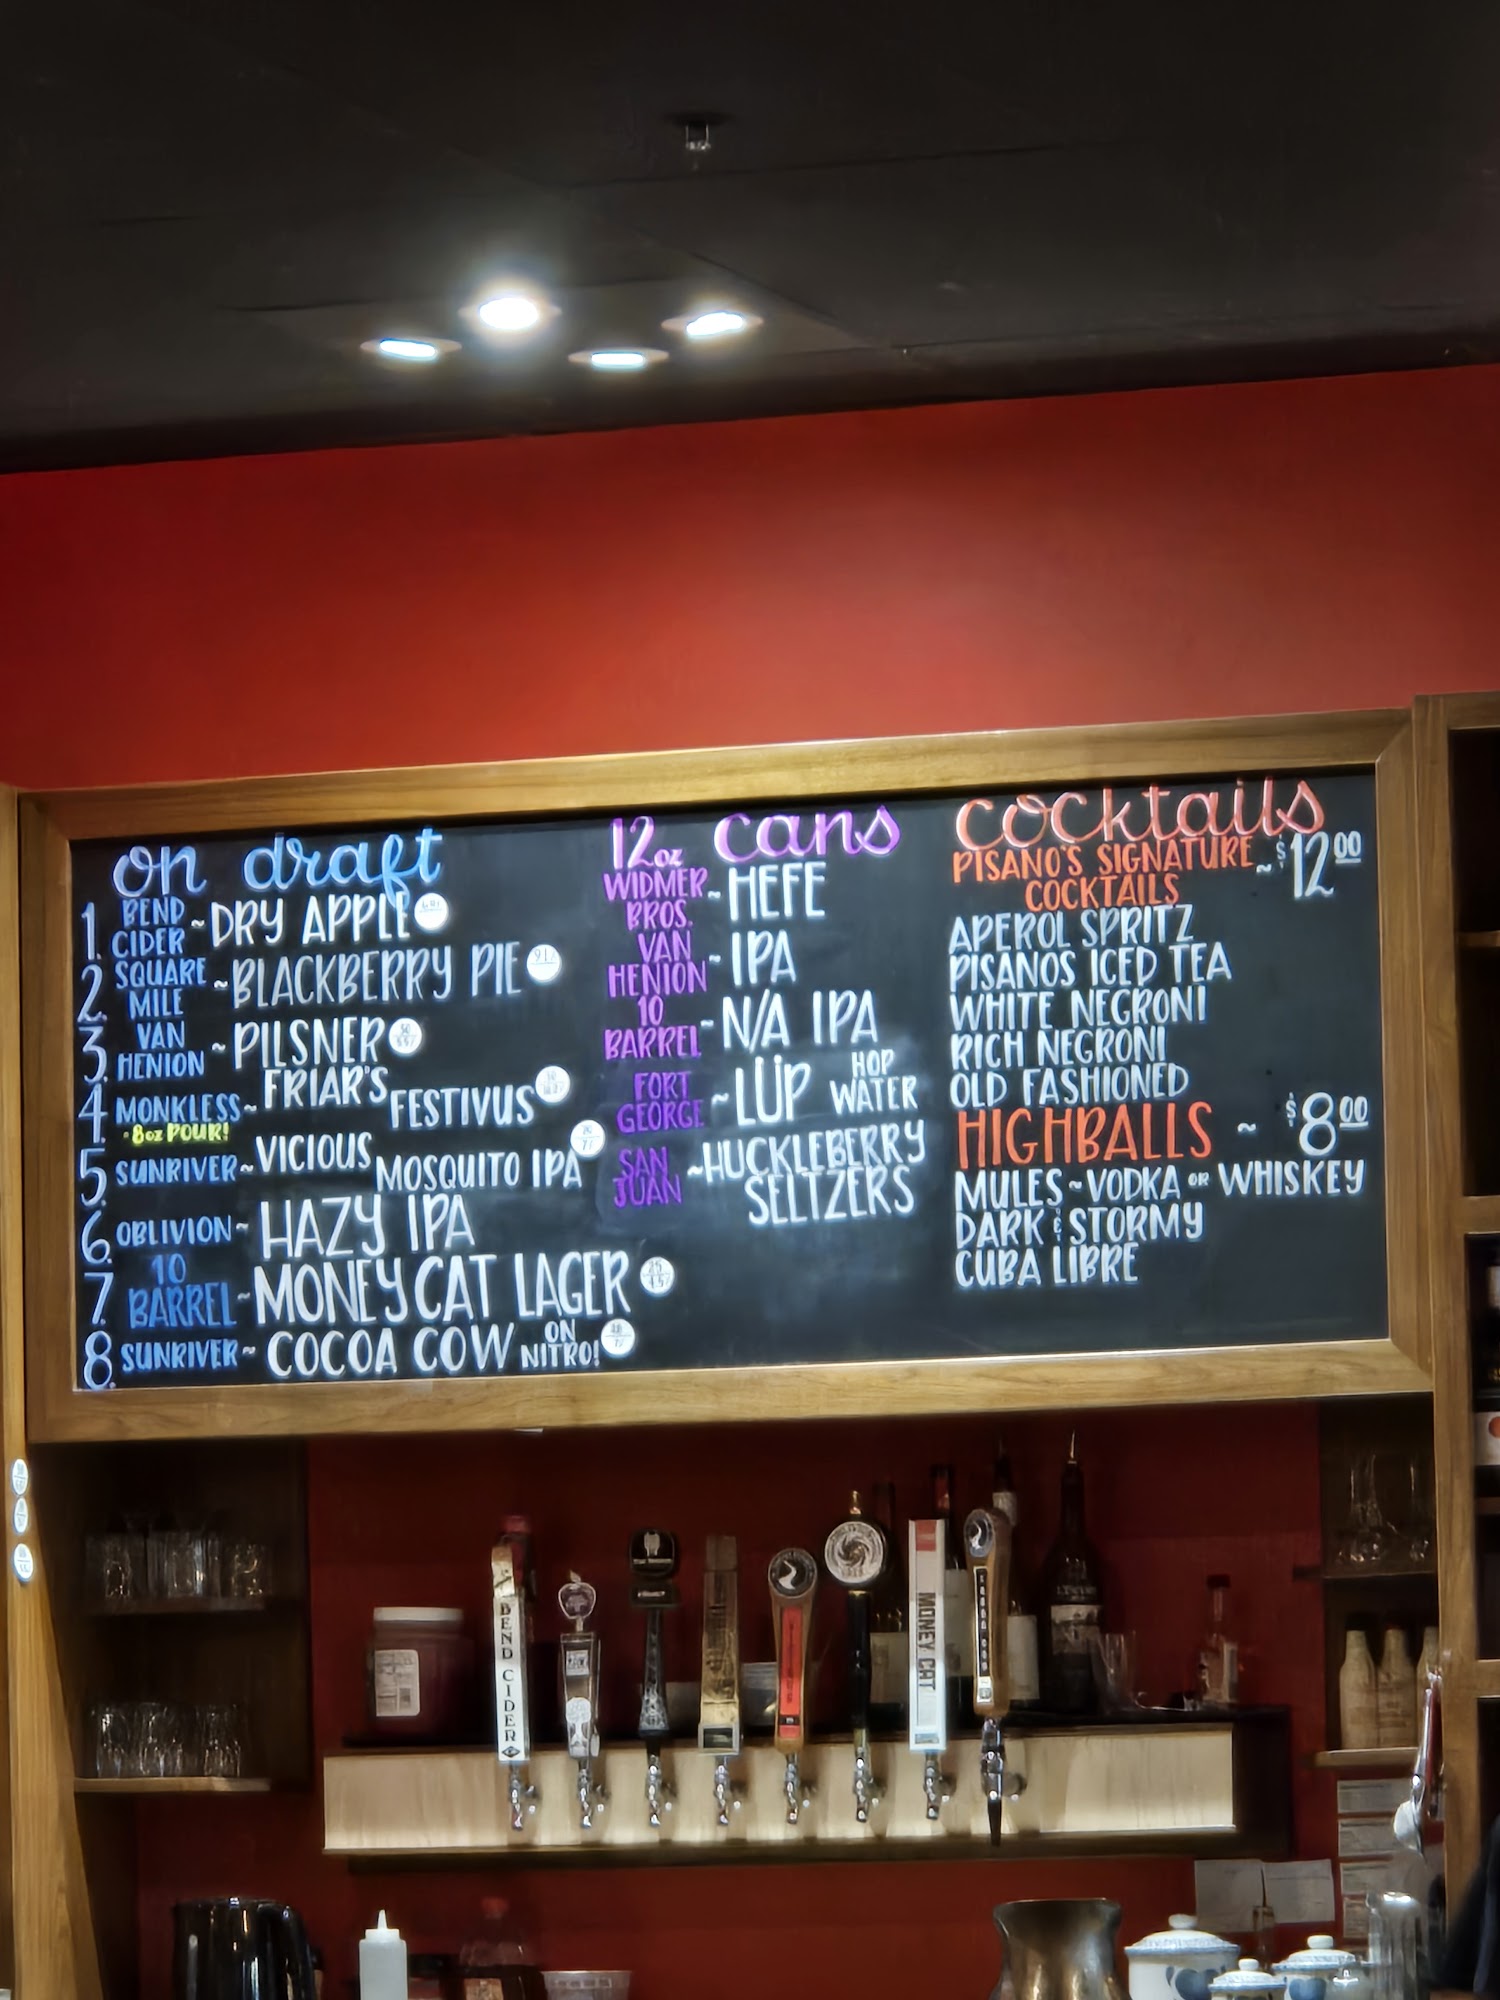 on draft
1. BEND CIDER ~ DRY APPLE
2. SQUARE MILE ~ BLACKBERRY PIE
3. VAN HENION ~ PILSNER
4. MONKLESS ~ FRIAR'S FESTIVUS
- 8oz POUR!
5. SUNRIVER ~ VICIOUS MOSQUITO IPA
6. OBLIVION ~ HAZY IPA
7. 10 BARREL ~ MONEY CAT LAGER
8. SUNRIVER ~ COCOA COW ON NITRO!
12oz cans
WIDMER BROS. ~ HEFE
VAN HENION ~ IPA
10 BARREL ~ N/A IPA
FORT GEORGE ~ LÜP HOP WATER
SAN JUAN ~ HUCKLEBERRY
SELTZERS
cocktails
PISANO'S SIGNATURE ~ $12.00
COCKTAILS
APEROL SPRITZ
PISANOS ICED TEA
WHITE NEGRONI
RICH NEGRONI
OLD FASHIONED
HIGHBALLS ~ $8.00
MULES ~ VODKA OR WHISKEY
DARK & STORMY
CUBA LIBRE
BEND CIDER
MONEY CAT